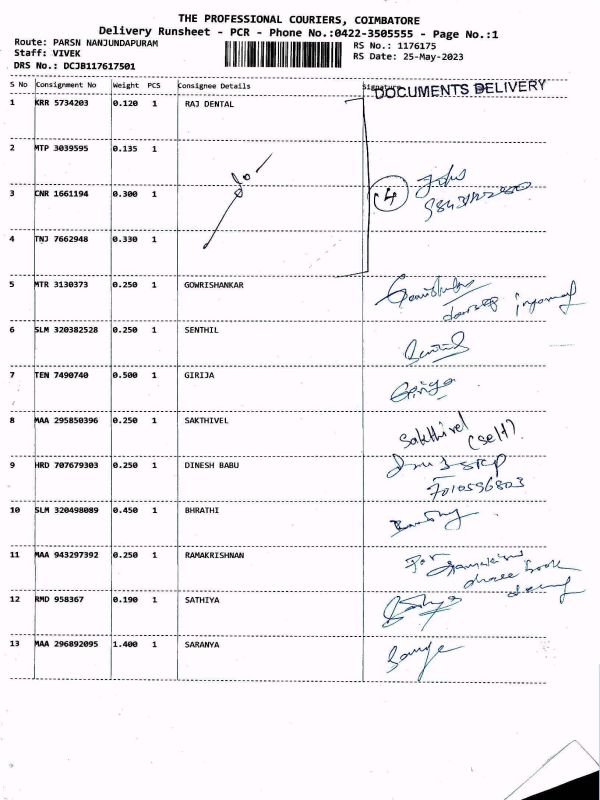 THE PROFESSIONAL COURIERS, COIMBATORE
Delivery Runsheet - PCR - Phone No.:0422-3505555 - Page No.:1
Route: PARSN NANJUNDAPURAM
RS No.: 1176175
Staff: VIVEK
RS Date: 25-May-2023
DRS No.: DCJB117617501
S No Consignment No Weight PCS Consignee Details Signature
DOCUMENTS DELIVERY
1 KRR 5734203 0.120 1 RAJ DENTAL
2 MTP 3039595 0.135 1
3 CNR 1661194 0.300 1 4
4 TNJ 7662948 0.330 1
5 MTR 3130373 0.250 1 GOWRISHANKAR
6 SLM 320382528 0.250 1 SENTHIL
7 TEN 7490740 0.500 1 GIRIJA
8 MAA 295850396 0.250 1 SAKTHIVEL Sakthivel
(self)
9 HRD 707679303 0.250 1 DINESH BABU
7010596803
10 SLM 320498089 0.450 1 BHRATHI
11 MAA 943297392 0.250 1 RAMAKRISHNAN For
12 RMD 958367 0.190 1 SATHIYA
13 MAA 296892095 1.400 1 SARANYA